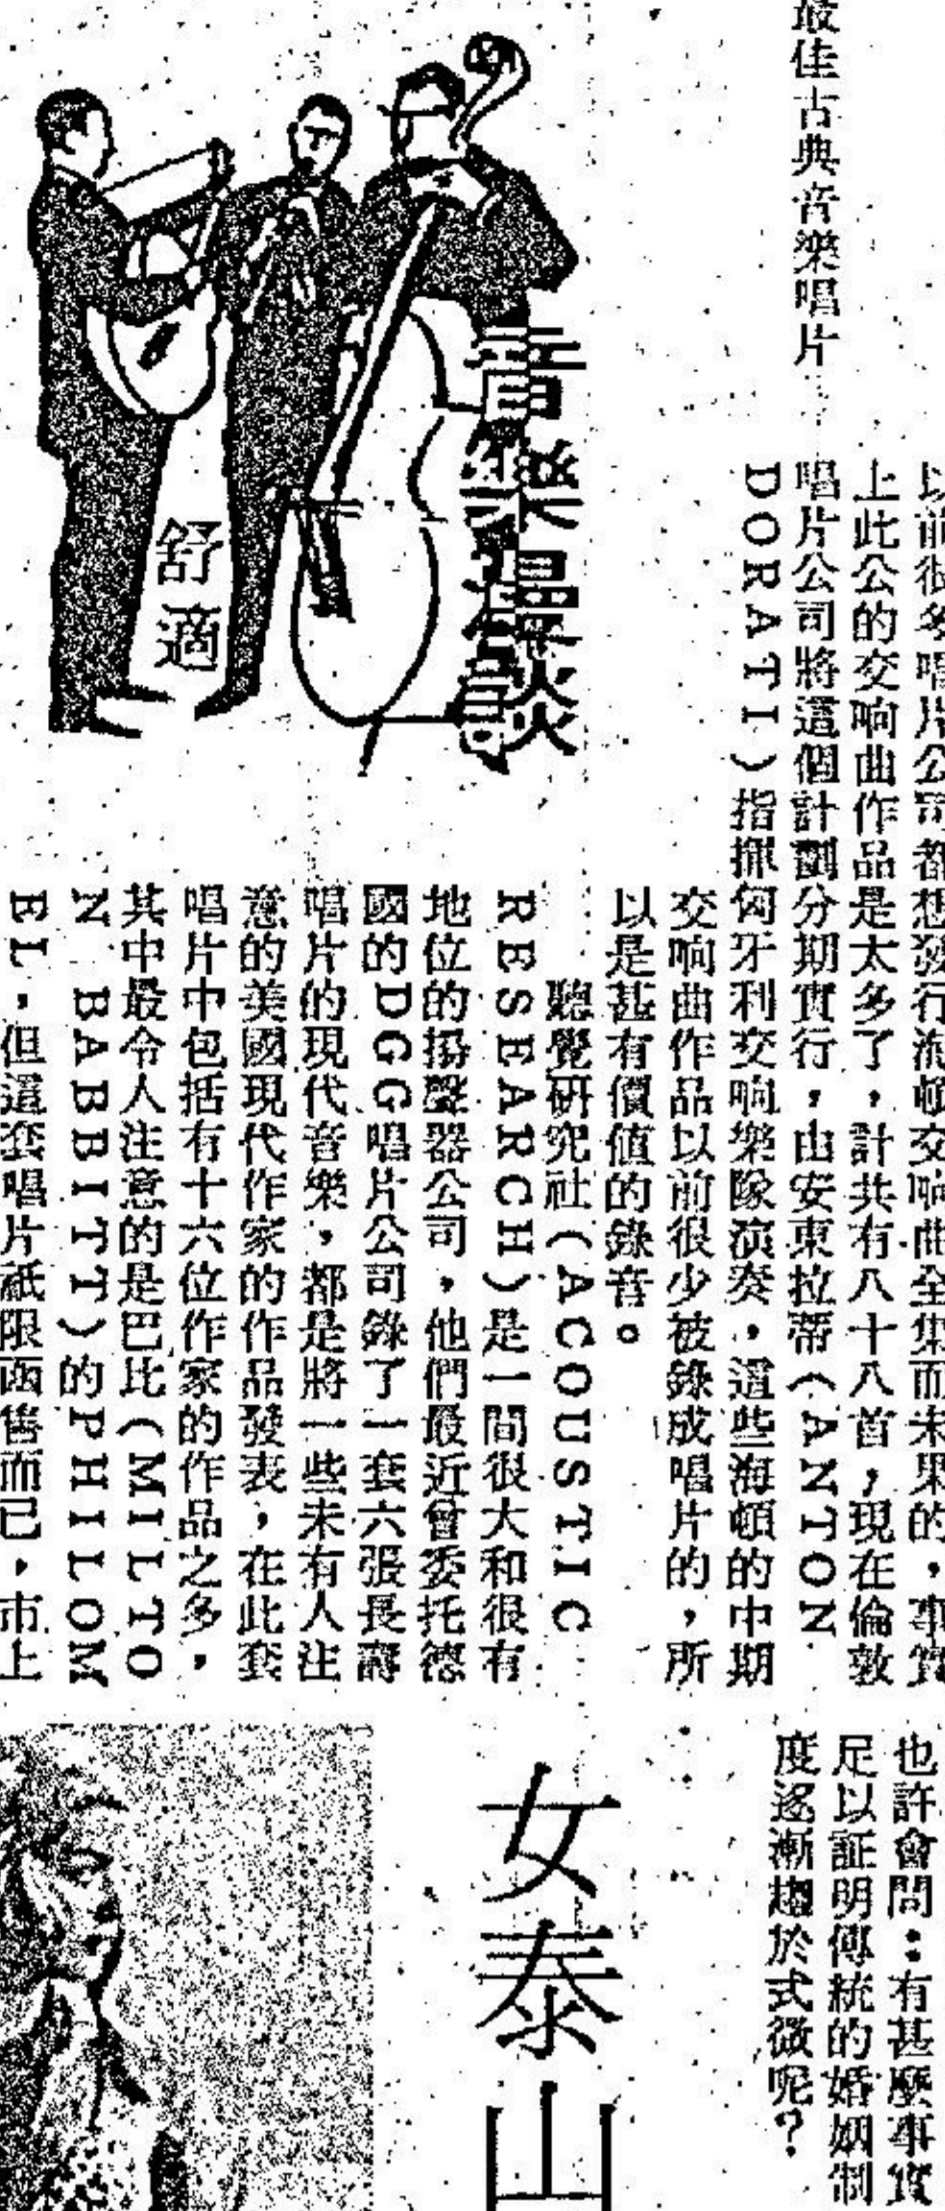 最佳古典音樂唱片
音樂漫談
舒適
以前很多唱片公司都想發行海頓交响曲全集而未果的，事實
上此公的交响曲作品是太多了，計共有八十八首，現在倫敦
唱片公司將這個計劃分期實行，由安東拉蒂（ANTON
DORATI）指揮匈牙利交响樂隊演奏，這些海頓的中期
交响曲作品以前很少被錄成唱片的，所
以是甚有價值的錄音。
聽覺研究社（ACOUSTIC
RESEARCH）是一間很大和很有
地位的揚聲器公司，他們最近曾委托德
國的DGG唱片公司錄了一套六張長壽
唱片的現代音樂，都是將一些未有人注
意的美國現代作家的作品發表，在此套
唱片中包括有十六位作家的作品之多，
其中最令人注意的是巴比（MILTO
N BABBITT）的PHILOM
EL，但這套唱片祇限函售而已，市上
也許會問：有甚麼事實
足以証明傳統的婚姻制
度逐漸趨於式微呢？
女泰山